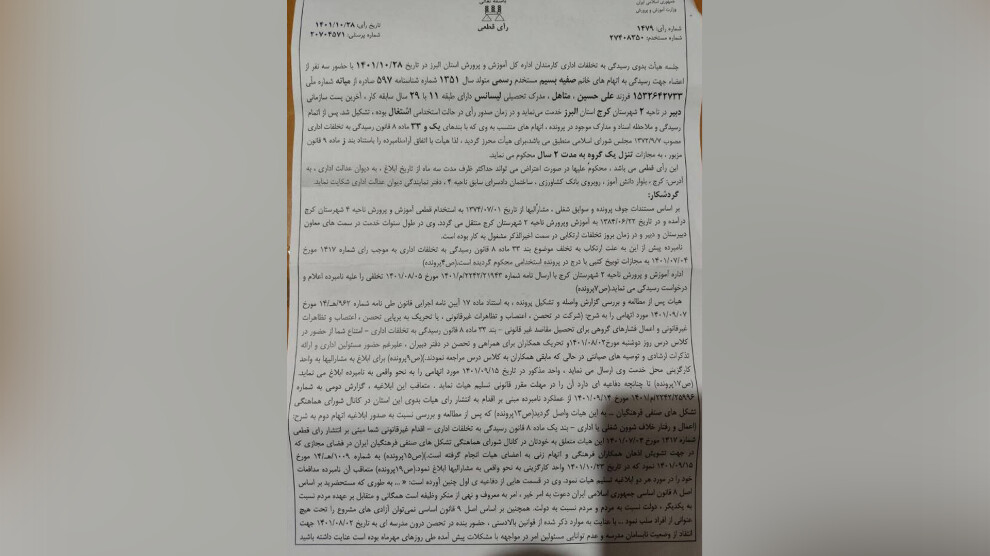 باسمه تعالی
جمهوری اسلامی ایران
وزارت آموزش و پرورش
رأی قطعی
تاریخ رأی: ۱۴۰۱/۱۰/۲۸
شماره پرسنلی: ۲۰۷۰۴۵۷۱
شماره رأی: ۱۴۷۹
شماره مستخدم: ۲۷۴۰۸۳۵۰
جلسه هیأت بدوی رسیدگی به تخلفات اداری کارمندان اداره کل آموزش و پرورش استان البرز در تاریخ ۱۴۰۱/۱۰/۲۸ با حضور سه نفر از
اعضاء جهت رسیدگی به اتهام های خانم صفیه بسیم مستخدم رسمی متولد سال ۱۳۵۱ شماره شناسنامه ۵۹۷ صادره از میانه شماره ملّی
۱۵۳۲۶۴۲۷۳۳ فرزند علی حسین ، متاهل ، مدرک تحصیلی لیسانس دارای طبقه ۱۱ با ۲۹ سال سابقه کار ، آخرین پست سازمانی
دبیر در ناحیه ۲ شهرستان کرج استان البرز خدمت می‌نماید و در زمان صدور رأی در حالت استخدامی اشتغال بوده ، تشکیل شد. پس از اتمام
رسیدگی و ملاحظه اسناد و مدارک موجود در پرونده ، اتهام های منتسب به وی که با بندهای یک و ۳۳ ماده ۸ قانون رسیدگی به تخلفات اداری
مصوب ۱۳۷۲/۹/۷ مجلس شورای اسلامی منطبق می‌باشد،برای هیأت محرز گردید ، لذا هیأت با اتفاق آراءنامبرده را باستناد بند ز ماده ۹ قانون
مزبور ، به مجازات تنزل یک گروه به مدت ۲ سال محکوم می نماید.
این رأی قطعی می باشد ، محکومٌ علیها در صورت اعتراض می تواند حداکثر ظرف مدت سه ماه از تاریخ ابلاغ ، به دیوان عدالت اداری ، به
آدرس: کرج ، بلوار دانش آموز ، روبروی بانک کشاورزی ، ساختمان دادسرای سابق ناحیه ۴ ، دفتر نمایندگی دیوان عدالت اداری شکایت نماید.
گردشکار:
بر اساس مستندات جوف پرونده و سوابق شغلی ، مشارٌالیها از تاریخ ۱۳۷۴/۰۷/۰۱ به استخدام قطعی آموزش و پرورش ناحیه ۴ شهرستان کرج
درآمده و در تاریخ ۱۳۸۴/۰۶/۲۲ به آموزش وپرورش ناحیه ۲ شهرستان کرج منتقل می گردد. وی در طول سنوات خدمت در سمت های معاون
دبیرستان و دبیر و در زمان بروز تخلفات ارتکابی در سمت اخیرالذکر مشغول به کار بوده است.
نامبرده پیش از این به علت ارتکاب به تخلف موضوع بند ۳۳ ماده ۸ قانون رسیدگی به تخلفات اداری به موجب رای شماره ۱۳۱۷ مورخ
۱۴۰۱/۰۷/۰۴ به مجازات توبیخ کتبی با درج در پرونده استخدامی محکوم گردیده است.(ص۴پرونده)
اداره آموزش و پرورش ناحیه ۲ شهرستان کرج با ارسال نامه شماره ۲۲۴۲/۲۱۹۴۳/م/۱۴۰۱ مورخ ۱۴۰۱/۰۸/۰۵ تخلفی را علیه نامبرده اعلام و
درخواست رسیدگی می نماید.(ص۷پرونده)
هیات پس از مطالعه و بررسی گزارش واصله و تشکیل پرونده ، به استناد ماده ۱۷ آیین نامه اجرایی قانون طی نامه شماره ۹۶۲/هـ/۱۴ مورخ
۱۴۰۱/۰۹/۰۷ مورد اتهامی را به شرح: (شرکت در تحصن ، اعتصاب و تظاهرات غیرقانونی ، یا تحریک به برپایی تحصن ، اعتصاب و تظاهرات
غیرقانونی و اعمال فشارهای گروهی برای تحصیل مقاصد غیر قانونی - بند ۳۳ ماده ۸ قانون رسیدگی به تخلفات اداری - امتناع شما از حضور در
کلاس درس روز دوشنبه مورخ۱۴۰۱/۰۸/۰۲و تحریک همکاران برای همراهی و تحصن در دفتر دبیران ، علیرغم حضور مسئولین اداری و ارائه
تذکرات ارشادی و توصیه های صیانتی در حالی که مابقی همکاران به کلاس درس مراجعه نمودند.)(ص۹پرونده) برای ابلاغ به مشارٌالیها به واحد
کارگزینی محل خدمت وی ارسال می نماید ، واحد مذکور در تاریخ ۱۴۰۱/۰۹/۱۵ مورد اتهامی را به نحو واقعی به نامبرده ابلاغ می نماید.
(ص۱۷پرونده) تا چنانچه دفاعیه ای دارد آن را در مهلت مقرر قانونی تسلیم هیات نماید . متعاقب این ابلاغیه ، گزارش دومی به شماره
۲۲۴۲/۲۵۹۹۶/م/۱۴۰۱ مورخ ۱۴۰۱/۰۹/۱۴ از عملکرد نامبرده مبنی بر اقدام به انتشار رای هیات بدوی این استان در کانال شورای هماهنگی
تشکل های صنفی فرهنگیان ... به این هیات واصل گردید(ص۱۳پرونده) که پس از مطالعه و بررسی نسبت به صدور ابلاغیه اتهام دوم به شرح:
(اعمال و رفتار خلاف شوون شغلی یا اداری - بند یک ماده ۸ قانون رسیدگی به تخلفات اداری - اقدام غیرقانونی شما مبنی بر انتشار رای قطعی
شماره ۱۳۱۷ مورخ ۱۴۰۱/۰۷/۰۴ این هیات متعلق به خودتان در کانال شورای هماهنگی تشکل های صنفی فرهنگیان ایران در فضای مجازی که
در جهت تشویش اذهان همکاران فرهنگی و اتهام زنی به اعضای هیات انجام گرفته است.)(ص۱۵پرونده) به شماره ۱۰۰۹/هـ/۱۴ مورخ
۱۴۰۱/۰۹/۱۵ نمود که در تاریخ ۱۴۰۱/۱۰/۲۲ واحد کارگزینی به نحو واقعی به مشارالیها ابلاغ نمود.(ص۱۹پرونده) متعاقب آن نامبرده مدافعات
خود را در مورد هر دو ابلاغیه تسلیم هیات نمود. وی در قسمت هایی از دفاعیه ی اول چنین آورده است: «... به طوری که مستحضرید بر اساس
اصل ۸ قانون اساسی جمهوری اسلامی ایران دعوت به امر خیر ، امر به معروف و نهی از منکر وظیفه است همگانی و متقابل بر عهده مردم نسبت
به یکدیگر ، دولت نسبت به مردم و مردم نسبت به دولت. همچنین بر اساس اصل ۹ قانون اساسی نمی‌توان آزادی های مشروع را تحت هیچ
عنوانی از افراد سلب نمود ... با عنایت به موارد ذکر شده از قوانین بالادستی ، حضور بنده در تحصن درون مدرسه ای به تاریخ ۱۴۰۱/۰۸/۰۲ جهت
انتقاد از وضعیت نابسامان مدرسه و عدم توانایی مسئولین امر در مواجهه با مشکلات پیش آمده طی روزهای مهرماه بوده است عنایت داشته باشید